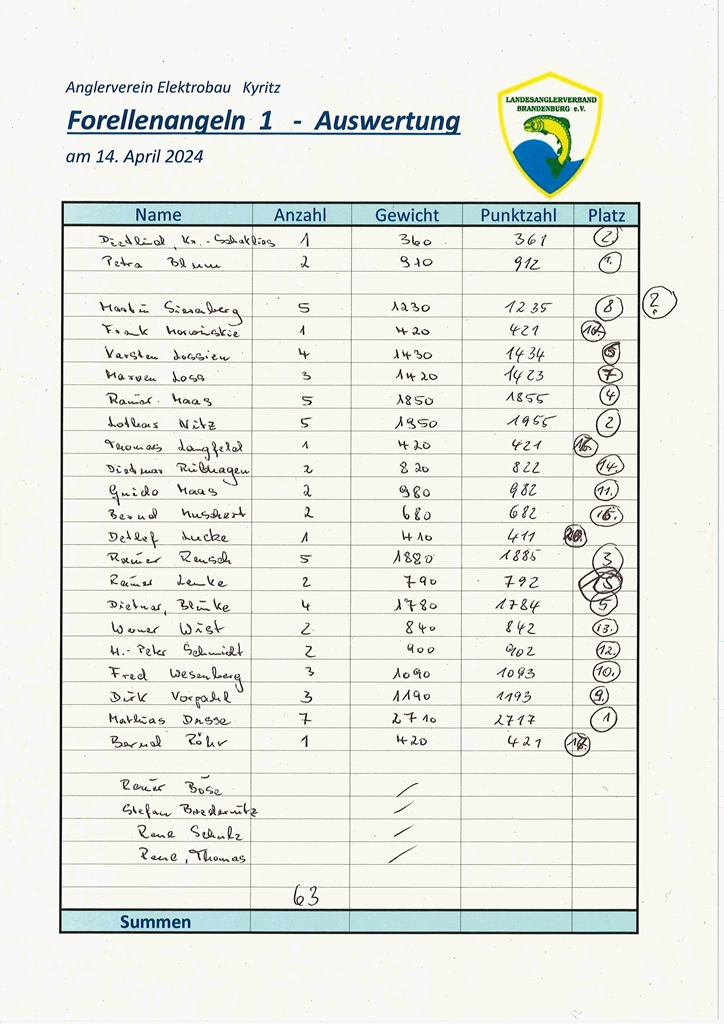 Anglerverein Elektrobau Kyritz
Forellenangeln 1 - Auswertung
am 14. April 2024
LANDESANGLERVERBAND
BRANDENBURG e.V.
Name Anzahl Gewicht Punktzahl Platz
1 360 361 2.
Petra Blum 2 910 912 1.
Martin Siesenberg 5 1230 1235 8 2.
Frank 1 420 421
Karsten Lossien 4 1430 1434 6
Marven Loss 3 1420 1423 7
Rainer Maas 5 1850 1855 4
Lothar Nitz 5 1950 1955 2
Thomas Langfeld 1 420 421
Dietmar 2 820 822 14.
Guido Maas 2 980 982 11.
Bernd Muschert 2 680 682
Detlef Lucke 1 410 411
Rainer Rensch 5 1880 1885 3
Rainer Lemke 2 790 792 15
Dietmar, Blünke 4 1780 1784 5
Werner Wüst 2 840 842 13.
H.- Peter Schmidt 2 900 902 12.
Fred Wesenberg 3 1090 1093 10.
Dirk Vorpahl 3 1190 1193 9.
Mathias Dasse 7 2710 2717 1
Bernd Röhr 1 420 421
Rainer Böse /
Stefan /
Rene Schulz /
Rene, Thomas /
63
Summen